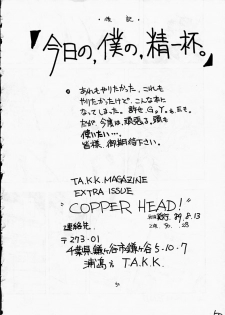 ・後記・
「今日の,僕の,精一杯。」
あれもやりたかった、これも
やりたかったけど、こんな本に
なってしまった。許せ、G.Y.E.Z.
だが、今度は、頑張る。頭も
使いたい…。
皆様、御期待下さい。
T.A.K.K. MAGAZINE
EXTRA ISSUE
"COPPER HEAD!"
初版発行 '89.8.13
連絡先
〒273-01
千葉県鎌ヶ谷市鎌ヶ谷 5-10-7
T.A.K.K.